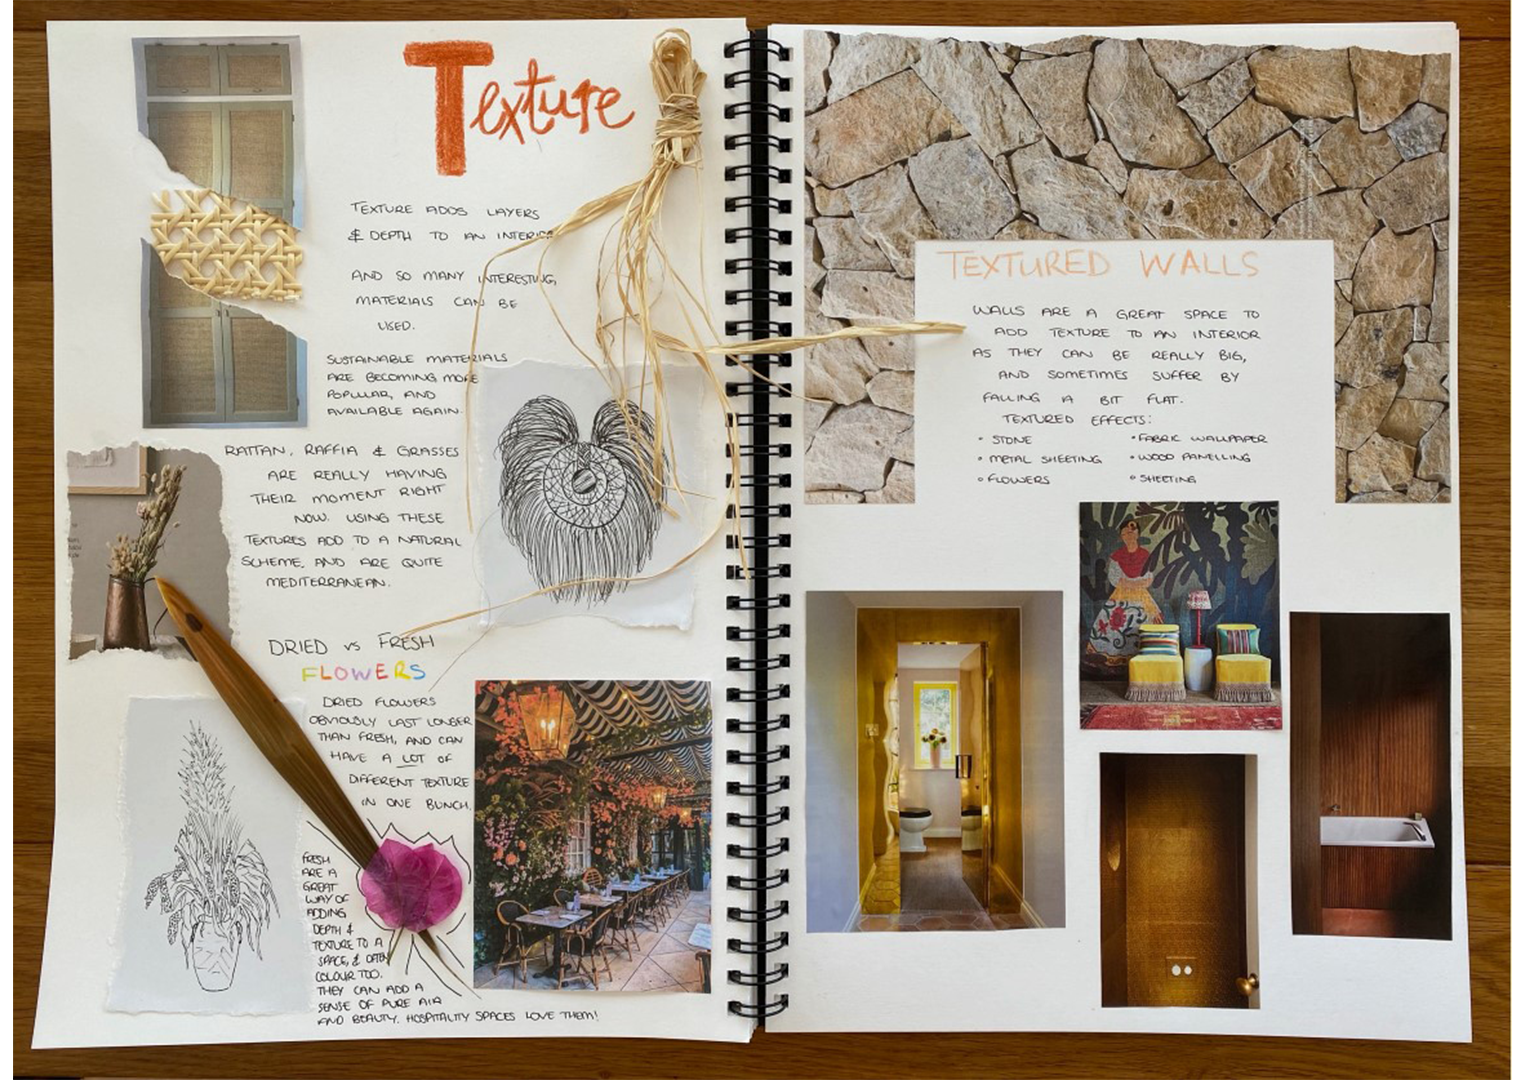 Texture
TEXTURE ADDS LAYERS
& DEPTH TO AN INTERIOR
AND SO MANY INTERESTING,
MATERIALS CAN BE
USED.
SUSTAINABLE MATERIALS
ARE BECOMING MORE
POPULAR, AND
AVAILABLE AGAIN.
RATTAN, RAFFIA & GRASSES
ARE REALLY HAVING
THEIR MOMENT RIGHT
NOW. USING THESE
TEXTURES ADD TO A NATURAL
SCHEME, AND ARE QUITE
MEDITERRANEAN.
DRIED vs FRESH
FLOWERS
DRIED FLOWERS
OBVIOUSLY LAST LONGER
THAN FRESH, AND CAN
HAVE A LOT OF
DIFFERENT TEXTURE
IN ONE BUNCH.
FRESH
ARE A
GREAT
WAY OF
ADDING
DEPTH &
TEXTURE TO A
SPACE, & OFTEN
COLOUR TOO.
THEY CAN ADD A
SENSE OF PURE AIR
AND BEAUTY. HOSPITALITY SPACES LOVE THEM!
TEXTURED WALLS
WALLS ARE A GREAT SPACE TO
ADD TEXTURE TO AN INTERIOR
AS THEY CAN BE REALLY BIG,
AND SOMETIMES SUFFER BY
FALLING A BIT FLAT.
TEXTURED EFFECTS:
• STONE
• METAL SHEETING
• FLOWERS
• FABRIC WALLPAPER
• WOOD PANELLING
• SHEETING